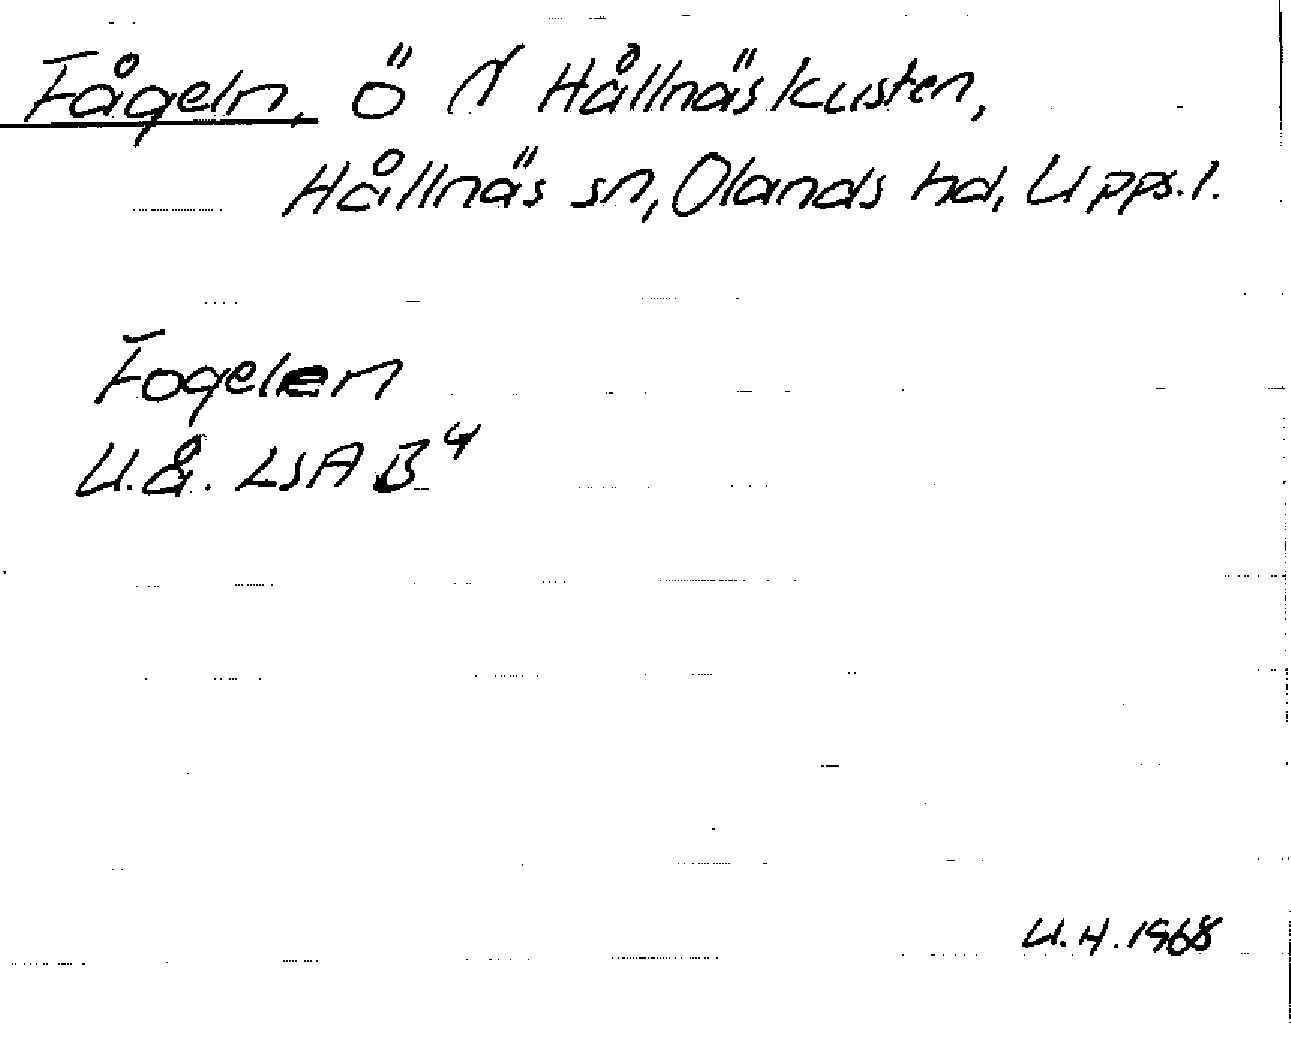 Fågeln, ö i Hållnäskusten,
Hållnäs sn, Olands hd, Upps. l.
Fogelen
U.å. LSA B4
U.H. 1968